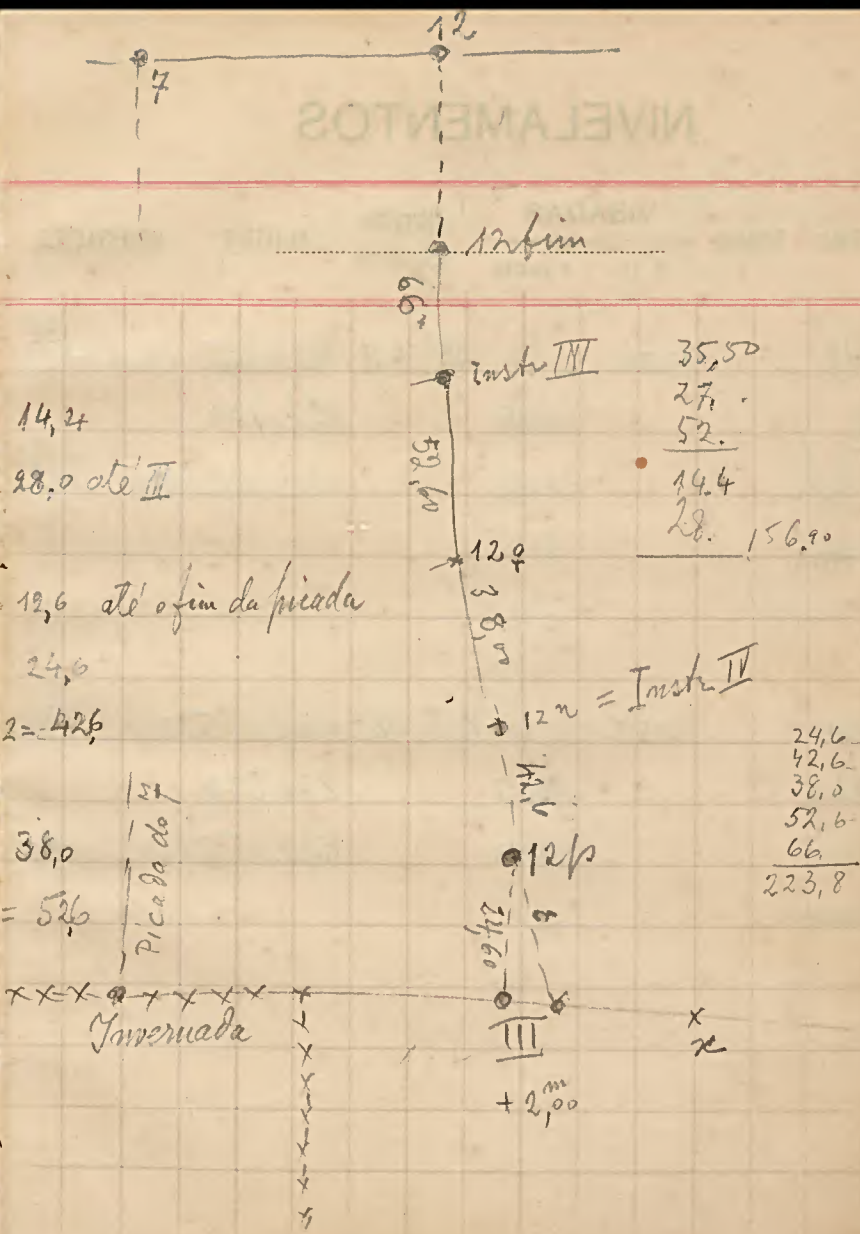 12
7
NIVELAMENTOS
12 fim
66
Instr III
35,50
27,
52.
14.4
28.
156,90
14,4
28,0 até III
52,60
12 q
12,6 até o fim da picada
38,0
24,6
12 n = Instr IV
2 = 42,6
42,6
24,6
42,6
38,0
52,6
66.
223,8
38,0
Picada do 7
12 p
= 52,6
24,60
Invernada
III
x
+ 2,00 m